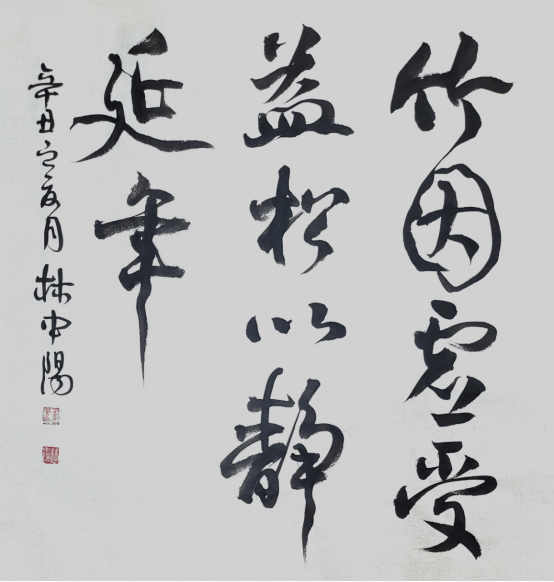 竹因虚受
益松以静
延年
辛丑之夏月林中陽